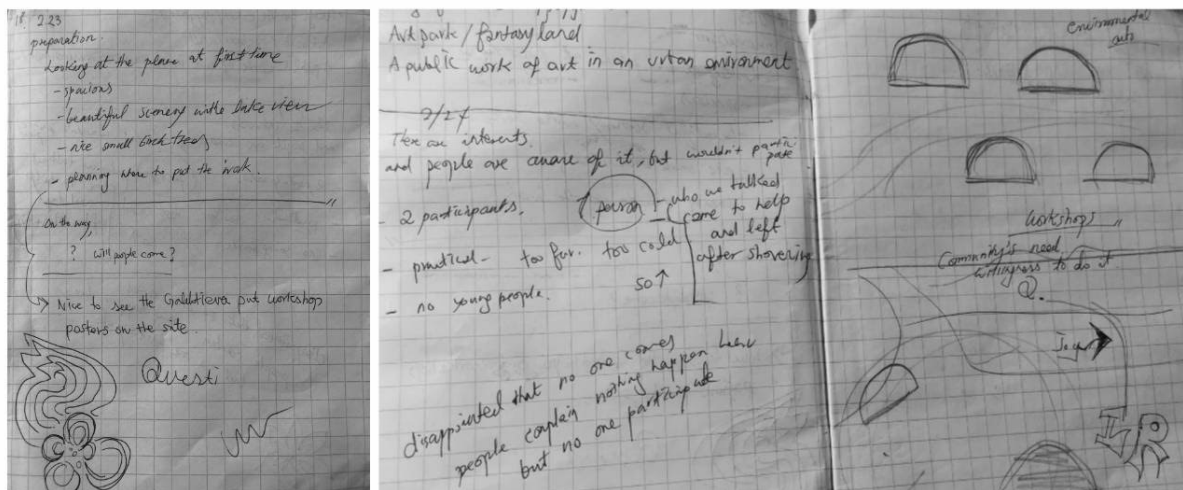 2.23
preparation.
Looking at the place at first time
- spacious
- beautiful scenery with lake view
- nice small birch trees
- planning where to put the work.
On the way,
? will people come?
Nice to see the put workshop
pastors on the site.
Questi
Art park / fantasy land
A public work of art in an urban environment
2/24
There are interests.
and people are aware of it, but wouldn't partici
pate
- 2 participants.
person - who we talked
came to help
and left
after shovering
- practical - too far. too cold
so ↑
- no young people.
disappointed that no one comes
people complain nothing happen here
but no one participate
Environmental
art
Workshops
Community's need
willingness to do it.
Q.
R